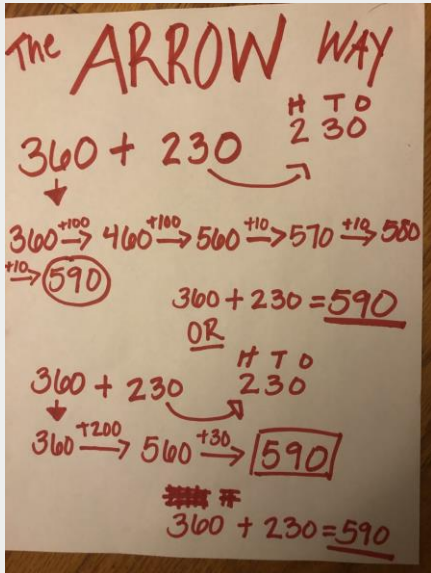 The ARROW WAY
H T O
360 + 230 230
360 +100→ 460 +100→ 560 +10→ 570 +10→ 580
+10→ 590
360 + 230 = 590
OR
H T O
360 + 230 230
360 +200→ 560 +30→ 590
360 + 230 = 590